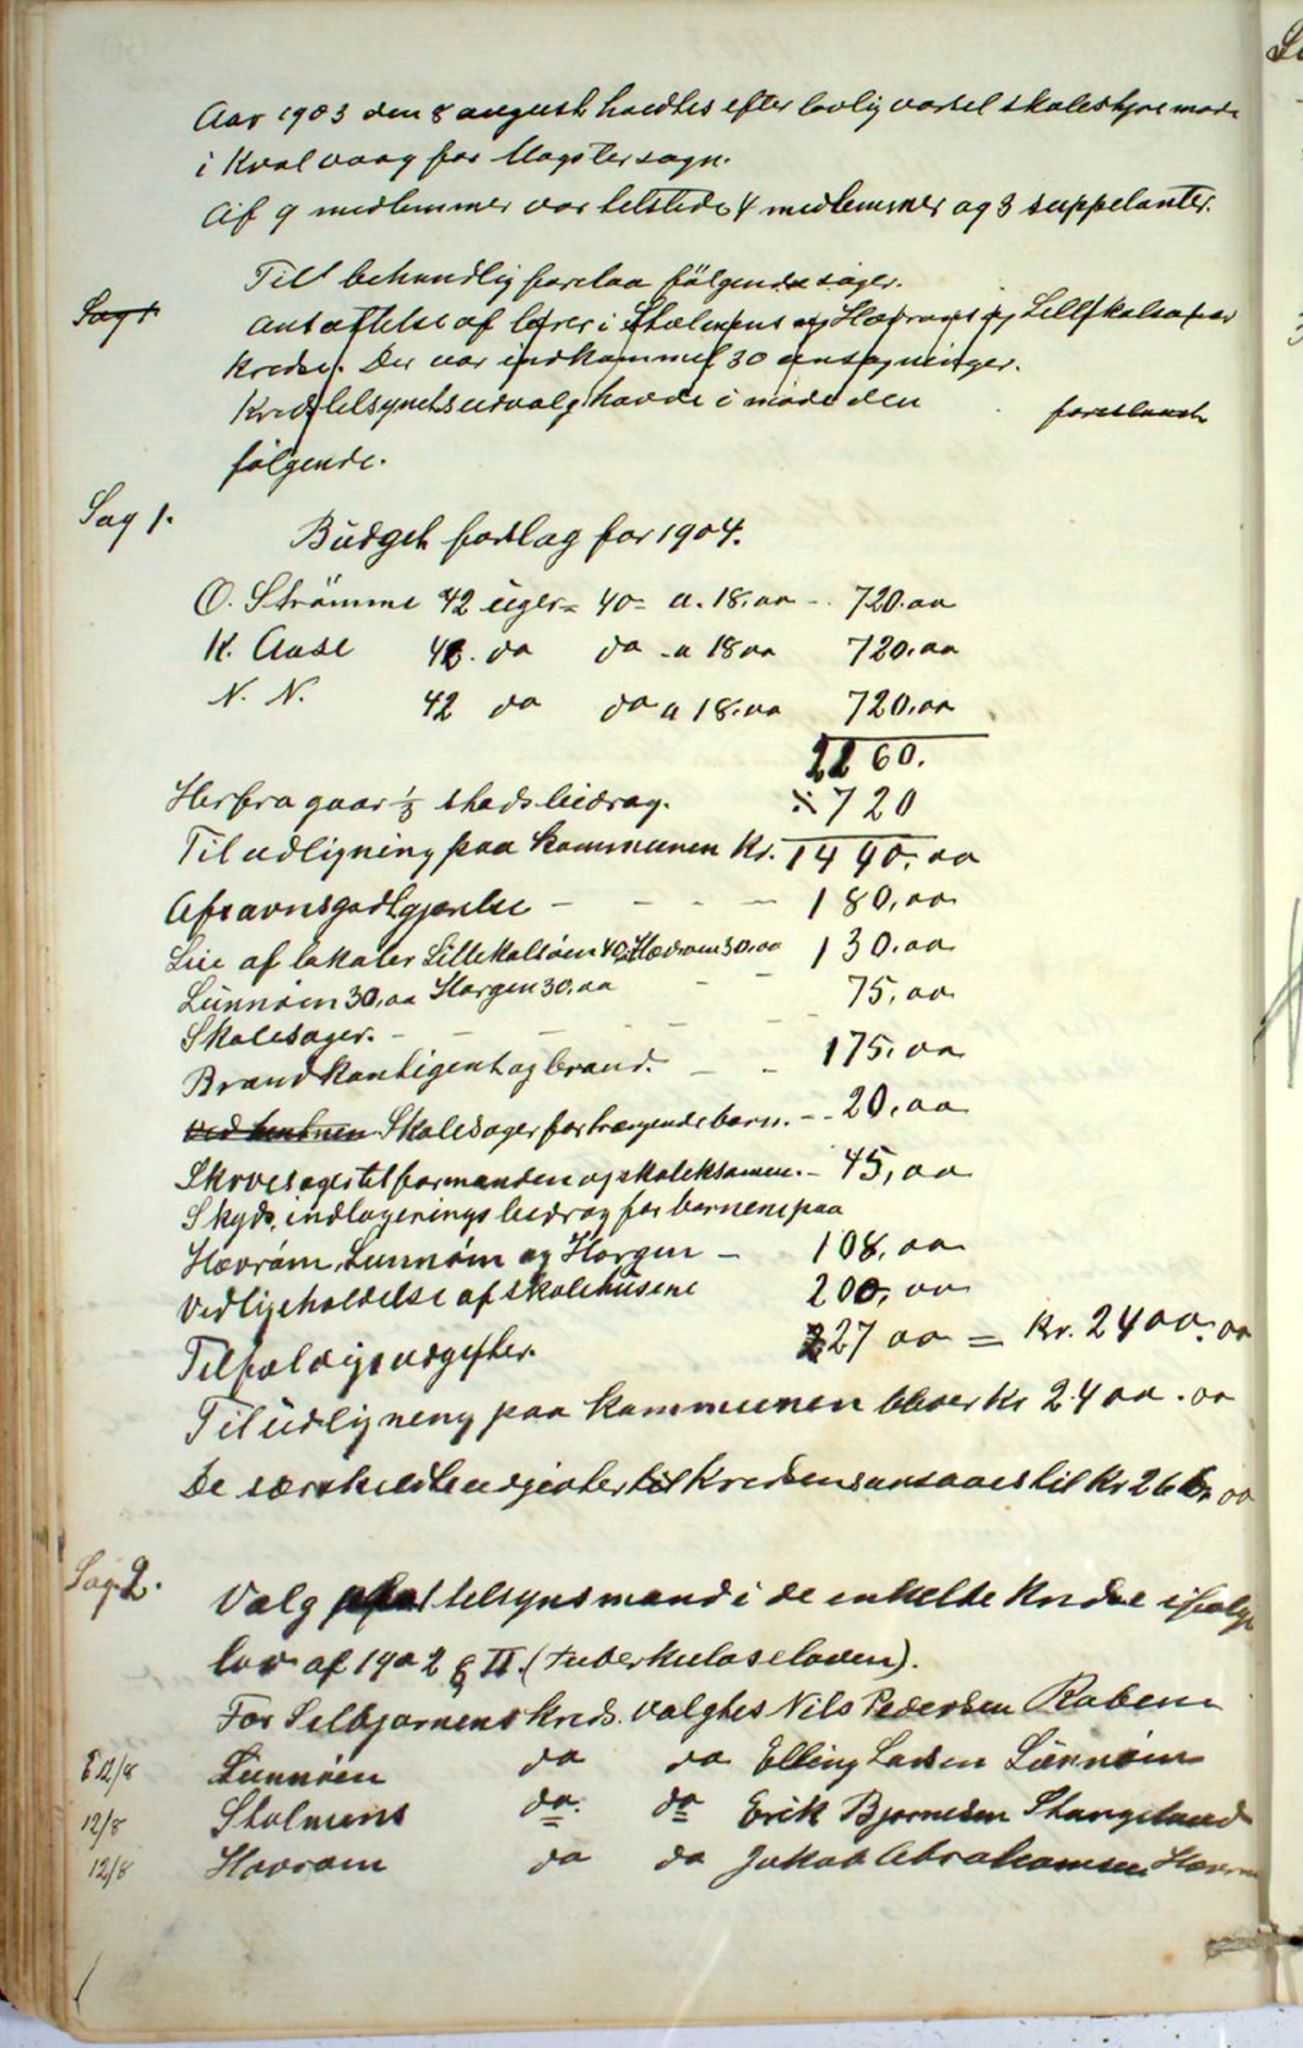 Aar 1903 den 8 august holdtes efter lovlig varsel skolestyremøde
i Kvalvaag for Møgster sogn.
Af 9 medlemmer var tilstede 4 medlemmer og 3 suppelanter.
Till behandlig forelaa fölgende sager.
Sag 1
Ansættelse af lærer i Stolmens og Hævrøens og Lillekalsøens
Kredse. Der var indkommet 30 ansøgninger.
Kredstilsynets udvalg havde i møde den foreslaaet
følgende.
Sag 1.
Büdget forslag for 1904.
O. Strömme 42 üger = 40 = a. 18.00 - 720.00
K. Aase 42. do do - a 18 00 720.00
N. N. 42 do do a 18.00 720.00
2260.
Herfra gaar 1/3 stadsbidrag. ÷ 720
Til udligning paa kommunen Kr. 1440.00
Afsavnsgodtgjørelse - - - - 180,00
Leie af lokaler Lillekalsøen 40,00 Hævrøen 30,00 130.00
Lünnøen 30,00 Horgen 30,00 - - 75,00
Skolesager. - - - - - -
Brandkontigent og brand. - - 175.00
ved Skolesager for trængende børn. - - 20,00
Skrvesager til formanden og skoleksamen. - 45,00
Skyds, indlogerings bidrag for børnene paa
Hævrøen, Lunnøen og Horgen - 108,00
Vedligeholdelse af skolehüsene 200,00
Tilfældige udgifter. 227 00 = Kr. 2400.00
Til üdligneng paa kommunen bliver Kr 2400.00
De særskildte udgivter til Kredsen ansaaes til Kr 266,00
Sag 2.
Valg tilsynsmand i de enkelte Kredse ifølge
lov af 1902 § II. (tuberkuloseloven).
For Selbjørnens kreds. valgtes Nils Pedersen Raben
12/8 Lünnøen do do Elling Larsen Lünnøen
12/8 Stolmens do. do Erik Bjørnesen Stangeland
12/8 Hovrøen do do Jakob Abrahamsen Hævrø